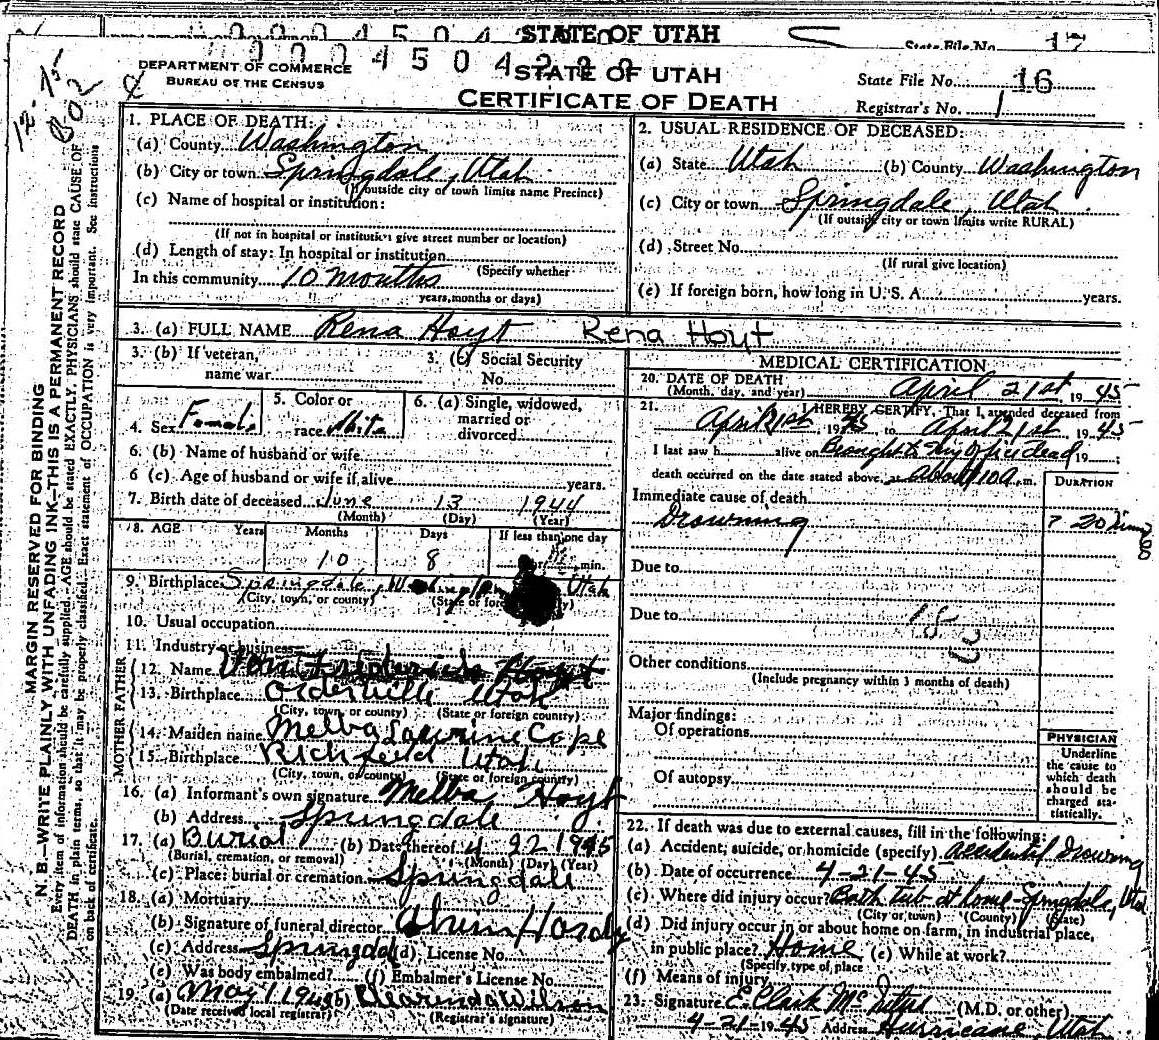 STATE OF UTAH
State File No. 17
0 0 0 4 5 0 4 2
DEPARTMENT OF COMMERCE
BUREAU OF THE CENSUS
STATE OF UTAH
CERTIFICATE OF DEATH
State File No. 16
Registrar's No. 1
12-75
802
MARGIN RESERVED FOR BINDING
N. B.—WRITE PLAINLY WITH UNFADING INK—THIS IS A PERMANENT RECORD
Every item of information should be carefully supplied. AGE should be stated EXACTLY. PHYSICIANS should state CAUSE OF
DEATH in plain terms, so that it may be properly classified. Exact statement of OCCUPATION is very important. See instructions
on back of certificate.
1. PLACE OF DEATH:
(a) County Washington
(b) City or town Springdale, Utah
(If outside city or town limits name Precinct)
(c) Name of hospital or institution:
(If not in hospital or institution give street number or location)
(d) Length of stay: In hospital or institution
(Specify whether
In this community 10 months
years, months or days)
2. USUAL RESIDENCE OF DECEASED:
(a) State Utah (b) County Washington
(c) City or town Springdale, Utah
(If outside city or town limits write RURAL)
(d) Street No.
(If rural give location)
(e) If foreign born, how long in U. S. A. years.
3. (a) FULL NAME Rena Hoyt Rena Hoyt
3. (b) If veteran,
name war
3. (c) Social Security
No.
4. Sex Female
5. Color or
race White
6. (a) Single, widowed,
married or
divorced
6. (b) Name of husband or wife
6 (c) Age of husband or wife if alive years.
7. Birth date of deceased June 13 1944
(Month) (Day) (Year)
8. AGE Years Months Days If less than one day
10 8 hr. min.
9. Birthplace Springdale, Utah
(City, town, or county) (State or foreign country)
10. Usual occupation
11. Industry or business
FATHER
12. Name Hoyt
13. Birthplace Orderville Utah
(City, town, or county) (State or foreign country)
MOTHER
14. Maiden name Melba Lawrine Cope
15. Birthplace Richfield Utah
(City, town, or county) (State or foreign country)
16. (a) Informant's own signature Melba Hoyt
(b) Address Springdale
17. (a) Burial (b) Date thereof 4 22 1945
(Burial, cremation, or removal) (Month) (Day) (Year)
(c) Place: burial or cremation Springdale
18. (a) Mortuary
(b) Signature of funeral director Hardy
(c) Address Springdale (d) License No.
(e) Was body embalmed? (f) Embalmer's License No.
19. (a) May 1 1945 (b) Wilson
(Date received local registrar) (Registrar's signature)
MEDICAL CERTIFICATION
20. DATE OF DEATH
(Month, day, and year) April 21st, 1945
21. I HEREBY CERTIFY, That I attended deceased from
April 21st, 1945 to April 21st 1945
I last saw h alive on Brought to my office dead, 19
death occurred on the date stated above, at about 10 a.m.
DURATION
Immediate cause of death
Drowning ? 20 min
Due to
Due to
183
Other conditions
(Include pregnancy within 3 months of death)
Major findings:
Of operations
Of autopsy
PHYSICIAN
Underline
the cause to
which death
should be
charged sta-
tistically.
22. If death was due to external causes, fill in the following:
(a) Accident, suicide, or homicide (specify) accidental Drowning
(b) Date of occurrence 4-21-45
(c) Where did injury occur? Bath tub at home-Springdale, Uta
(City or town) (County) (State)
(d) Did injury occur in or about home on farm, in industrial place,
in public place? Home (e) While at work?
(Specify type of place
(f) Means of injury
23. Signature E. Clark Mc (M.D. or other)
4-21-1945 Address Hurricane, Utah